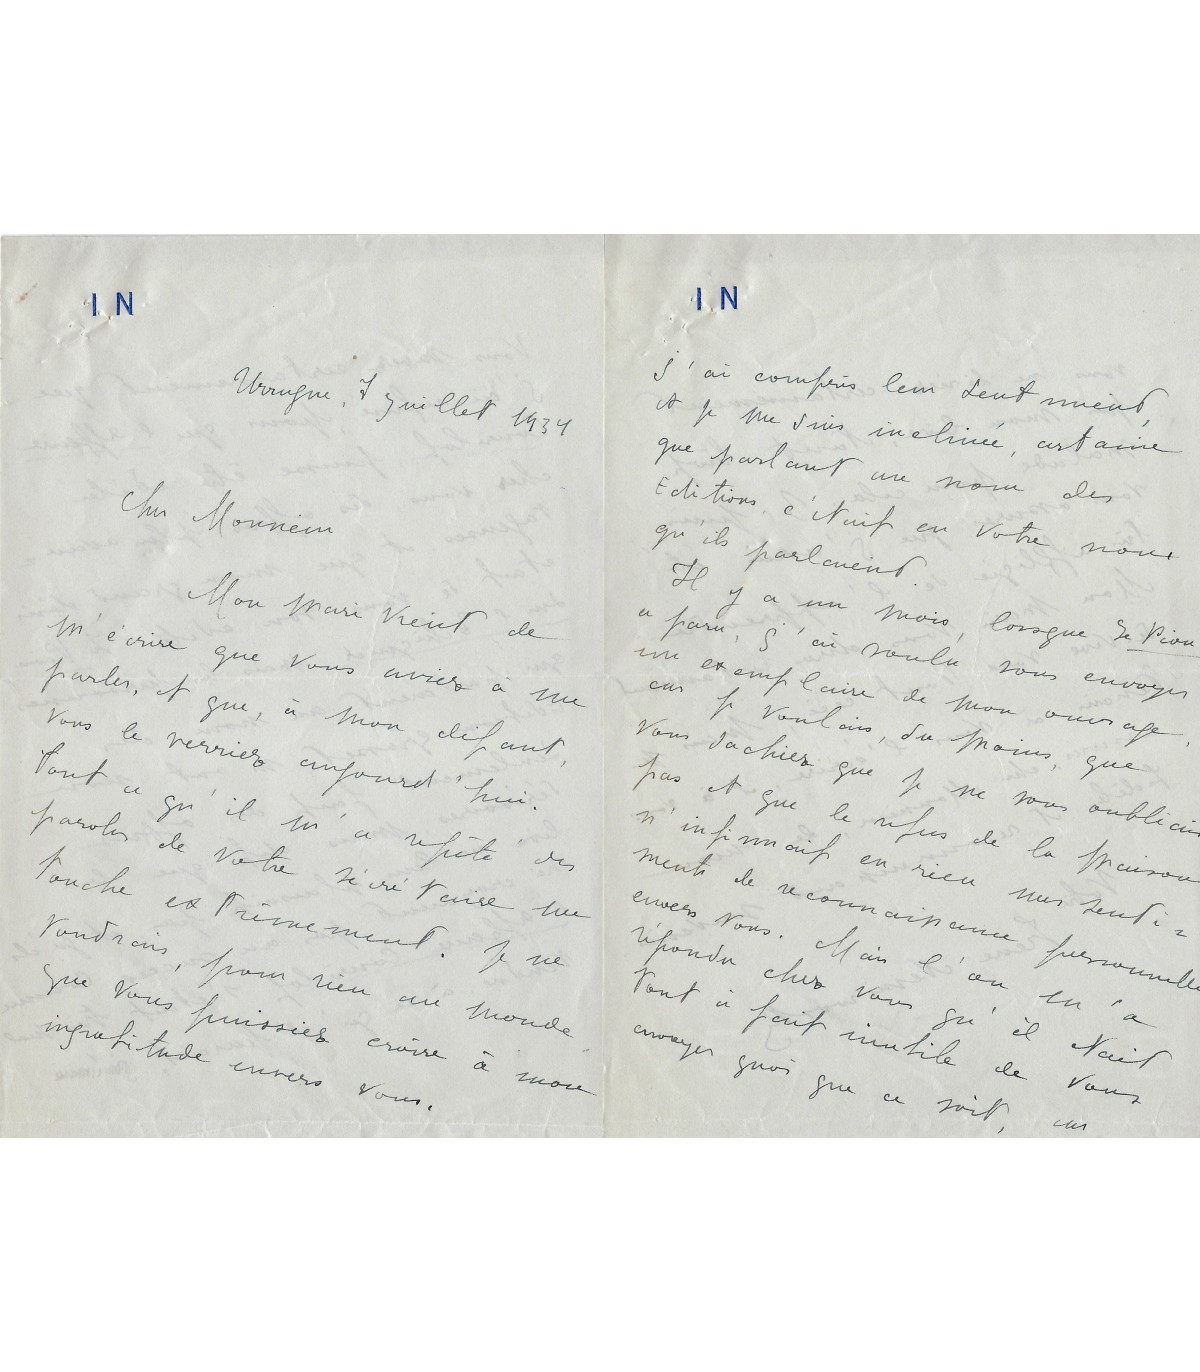 I N
Urrugne, 7 juillet 1934
Cher Monsieur
Mon mari vient de
m'écrire que vous aviez à me
parler, et que, à mon défaut,
vous le verriez aujourd'hui.
Tout ce qu'il m'a répété des
paroles de votre sécrétaire me
touche extrêmement. Je ne
voudrais, pour rien au monde
que vous puissiez croire à mon
ingratitude envers vous.
I N
J'ai compris leur sentiment,
et je me suis inclinée, certaine
que parlant au nom des
Editions, c'était en votre nom
qu'ils parlaient.
Il y a un mois, lorsque Le Pion
a paru, j'ai voulu vous envoyer
un exemplaire de mon ouvrage,
car je voulais, du moins, que
vous sachiez que je ne vous oubliais
pas et que le refus de la maison
n'infirmait en rien mes senti-
ments de reconnaissance personnelle
envers vous. Mais l'on m'a
répondu chez vous qu'il était
tout à fait inutile de vous
envoyer quoi que ce soit, car